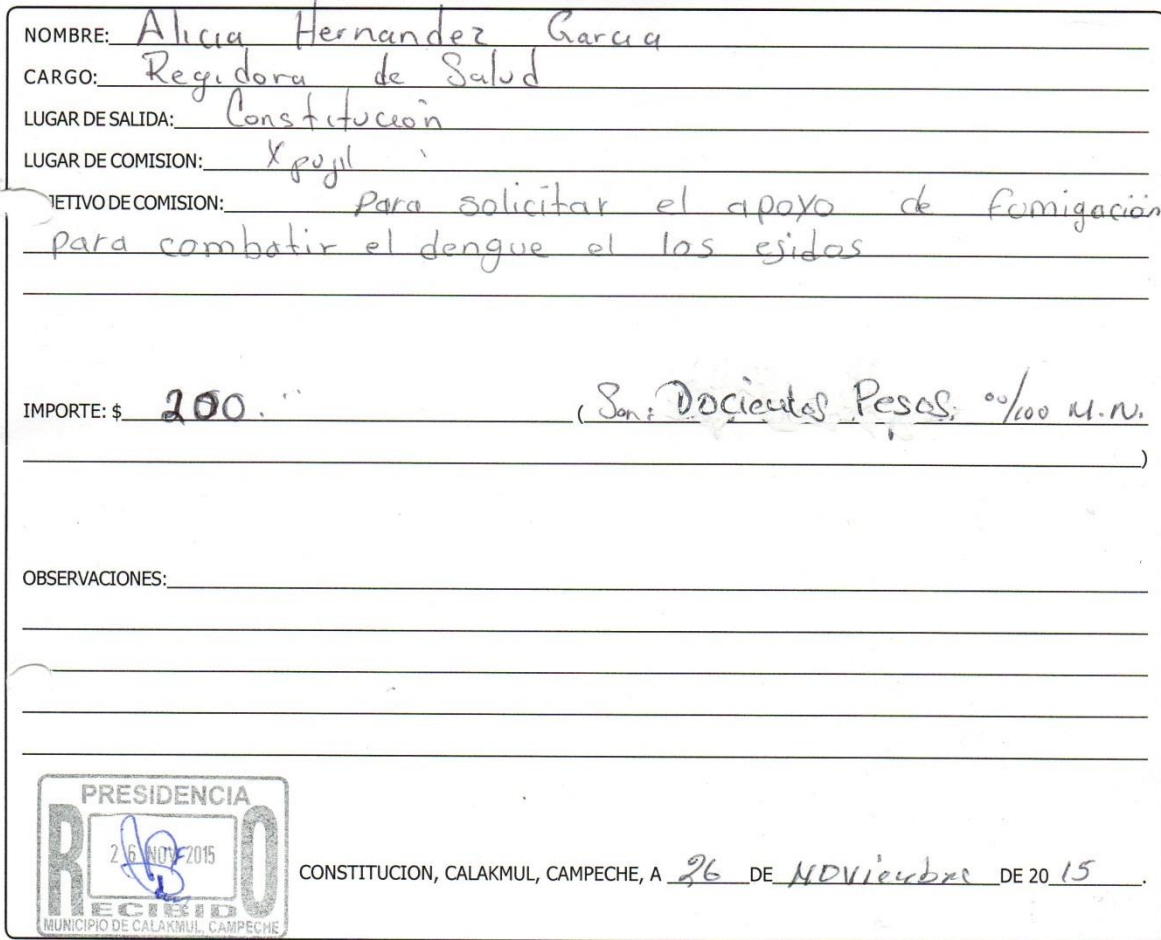 NOMBRE: Alicia Hernandez Garcia
CARGO: Regidora de Salud
LUGAR DE SALIDA: Constitución
LUGAR DE COMISION: Xpujil
JETIVO DE COMISION: para solicitar el apoyo de fomigación
para combatir el dengue el los ejidos
IMPORTE: $ 200. (Son: Docientos Pesos. 00/100 M.N.
)
OBSERVACIONES:
PRESIDENCIA
26 NOV 2015
RECIBIDO
MUNICIPIO DE CALAKMUL, CAMPECHE
CONSTITUCION, CALAKMUL, CAMPECHE, A 26 DE NOViembre DE 20 15.